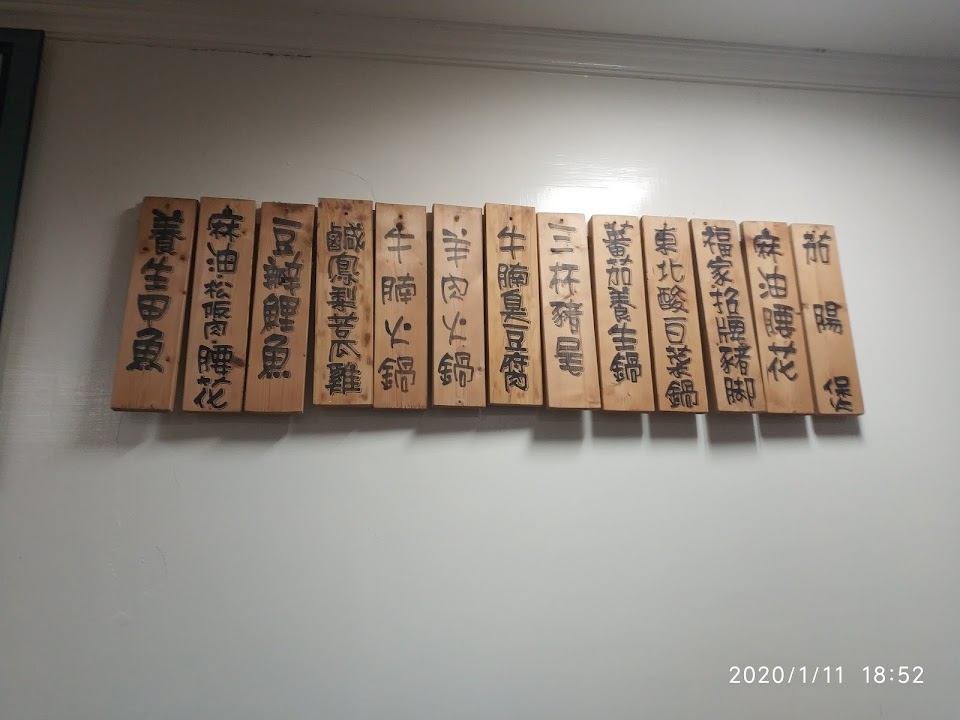 茄腸煲
麻油腰花
福家招牌豬脚
東北酸白菜鍋
蕃茄養生鍋
三杯豬
牛腩臭豆腐
羊肉火鍋
牛腩火鍋
鹹鳳梨苦瓜雞
豆瓣鯉魚
麻油·松阪肉·腰花
養生田魚
2020/1/11 18:52